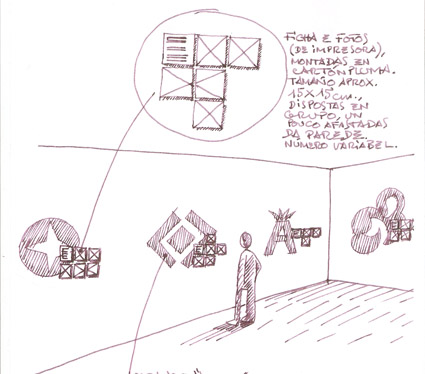 FICHA E FOTOS
(DE IMPRESORA),
MONTADAS EN
CARTÓN PLUMA.
TAMAÑO APROX.
15X15 cm.,
DISPOSTAS EN
GRUPO, UN
POUCO AFASTADAS
DA PAREDE.
NÚMERO VARIABEL.